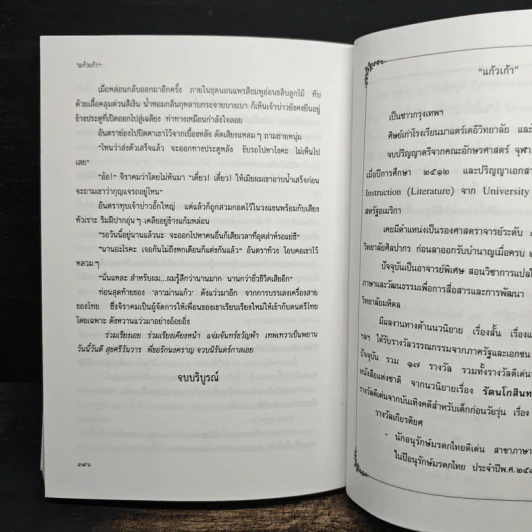 "แก้วเก้า"
เมื่อหล่อนกลับออกมาอีกครั้ง ภายในชุดนอนแพรสีชมพูอ่อนขลิบลูกไม้ ทับ
ด้วยเสื้อคลุมต่วนสีเงิน น้ำหอมกลิ่นกุหลาบกระจายบางเบา ก็เห็นเจ้าบ่าวยังคงยืนอยู่
ข้างประตูที่เปิดออกไปสู่เฉลียง ท่าทางเหมือนกำลังใจลอย
อันตราย่องไปปิดตาเขาไว้จากเบื้องหลัง ดัดเสียงแหลมๆ ถามชายหนุ่ม
"ไหนว่าส่งตัวเสร็จแล้ว จะออกทางประตูหลัง ขับรถไปหาไงคะ ไม่เห็นไป
เลย"
"อ้อ!" จิราคมว่าโดยไม่หันมา "เดี๋ยว! เดี๋ยว! ให้เมียผมเขาอาบน้ำเสร็จก่อน
จะถามเขาว่ากุญแจรถอยู่ไหน"
อันตราทุบเจ้าบ่าวอั้กใหญ่ แต่แล้วก็ถูกสวมกอดไว้ในวงแขนพร้อมกับเสียง
หัวเราะ ริมฝีปากอุ่นๆ เคลียอยู่ข้างแก้มหล่อน
"รอวันนี้อยู่นานแล้วนะ จะออกไปหาคนอื่นก็เสียเวลาที่อุตส่าห์รอแย่ซี"
"นานอะไรคะ เจอกันไม่ถึงหกเดือนก็แต่งกันแล้ว" อันตราท้วง โอบคอเขาไว้
หลวมๆ
"นั่นแหละ สำหรับผม...ผมรู้สึกว่านานมาก นานกว่าชั่วชีวิตเสียอีก"
ท่อนสุดท้ายของ 'ลาวม่านแก้ว' ดังแว่วมาอีก จากการบรรเลงเครื่องสาย
ของไทย ซึ่งจิราคมเป็นผู้จัดการให้เพื่อนของเขาเรียบเรียงใหม่ให้เข้ากับดนตรีไทย
โดยเฉพาะ ดังหวานแว่วมาอย่างอ้อยอิ่ง
ร่วมเรียงเอย ร่วมเรียงเคียงหน้า แจ่มจันทร์ขวัญฟ้า เทพเทวาเป็นพยาน
วันนี้วันดี สุขศรีวันวาร พี่ขอรักนงคราญ จวบนิรันดร์กาลเอย
จบบริบูรณ์
๓๙๖
"แก้วเก้า"
เป็นชาวกรุงเทพฯ
ศิษย์เก่าโรงเรียนมาแตร์เดอีวิทยาลัย และ
จบปริญญาตรีจากคณะอักษรศาสตร์ จุฬา
เมื่อปีการศึกษา ๒๕๑๒ และปริญญาเอกสา
Instruction (Literature) จาก University
สหรัฐอเมริกา
เคยมีตำแหน่งเป็นรองศาสตราจารย์ระดับ
วิทยาลัยศิลปากร ก่อนลาออกรับบำนาญเมื่อครบ
ปัจจุบันเป็นอาจารย์พิเศษ สอนวิชาการแปล
ภาษาและวัฒนธรรมเพื่อการสื่อสารและการพัฒนา
วิทยาลัยมหิดล
มีผลงานทางด้านนวนิยาย เรื่องสั้น เรื่อง
ฯลฯ ได้รับรางวัลวรรณกรรมจากภาครัฐและเอกชน
ปัจจุบัน รวม ๑๗ รางวัล รวมทั้งรางวัลดีเด่น
หนังสือแห่งชาติ จากนวนิยายเรื่อง รัตนโกสินท
รางวัลดีเด่นจากบันเทิงคดีสำหรับเด็กก่อนวัยรุ่น เรื่อง
รางวัลเกียรติยศ
- นักอนุรักษ์มรดกไทยดีเด่น สาขาภาษา
ในปีอนุรักษ์มรดกไทย ประจำปีพ.ศ.๒๕